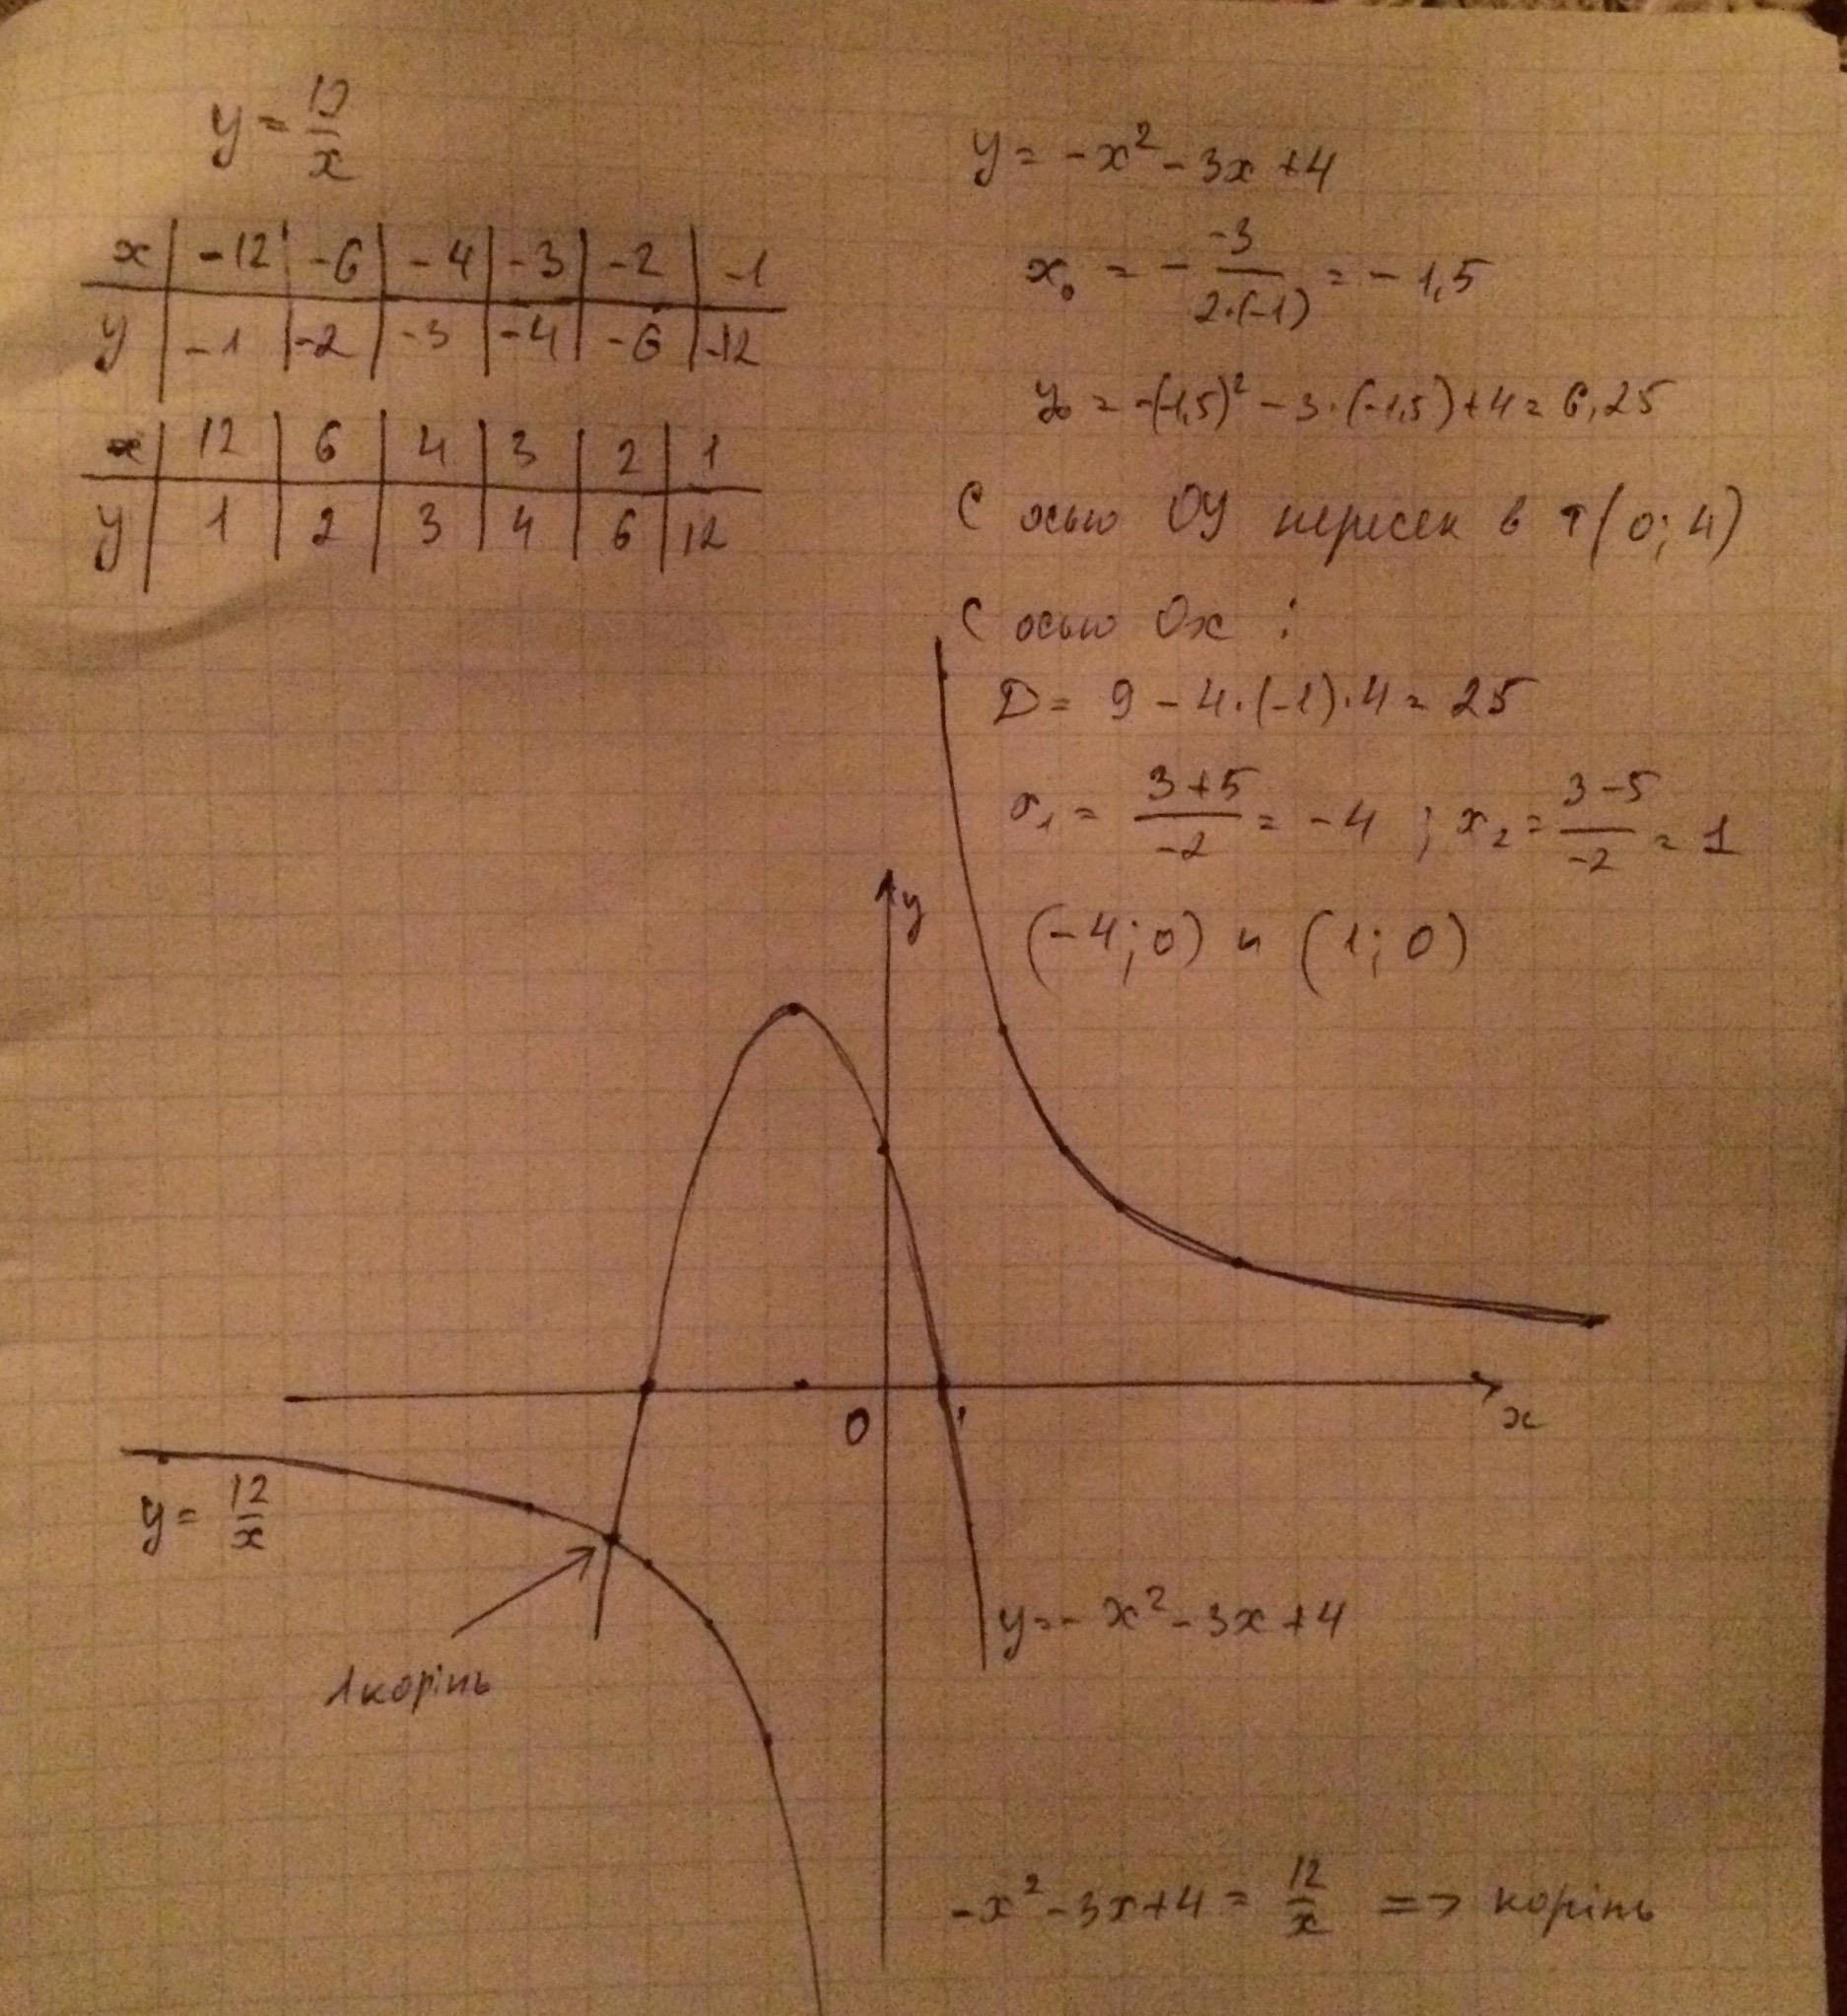 y = 12/x
x | -12 | -6 | -4 | -3 | -2 | -1
y | -1 | -2 | -3 | -4 | -6 | -12
x | 12 | 6 | 4 | 3 | 2 | 1
y | 1 | 2 | 3 | 4 | 6 | 12
y = -x² - 3x + 4
x₀ = - -3/2·(-1) = -1,5
y₀ = -(-1,5)² - 3·(-1,5) + 4 = 6,25
С осью ОУ пересек в т(0; 4)
С осью Ох :
D = 9 - 4·(-1)·4 = 25
x₁ = 3+5/-2 = -4 ; x₂ = 3-5/-2 = 1
(-4; 0) и (1; 0)
y
0
1
x
y = 12/x
y = -x² - 3x + 4
1 корінь
-x² - 3x + 4 = 12/x => корінь